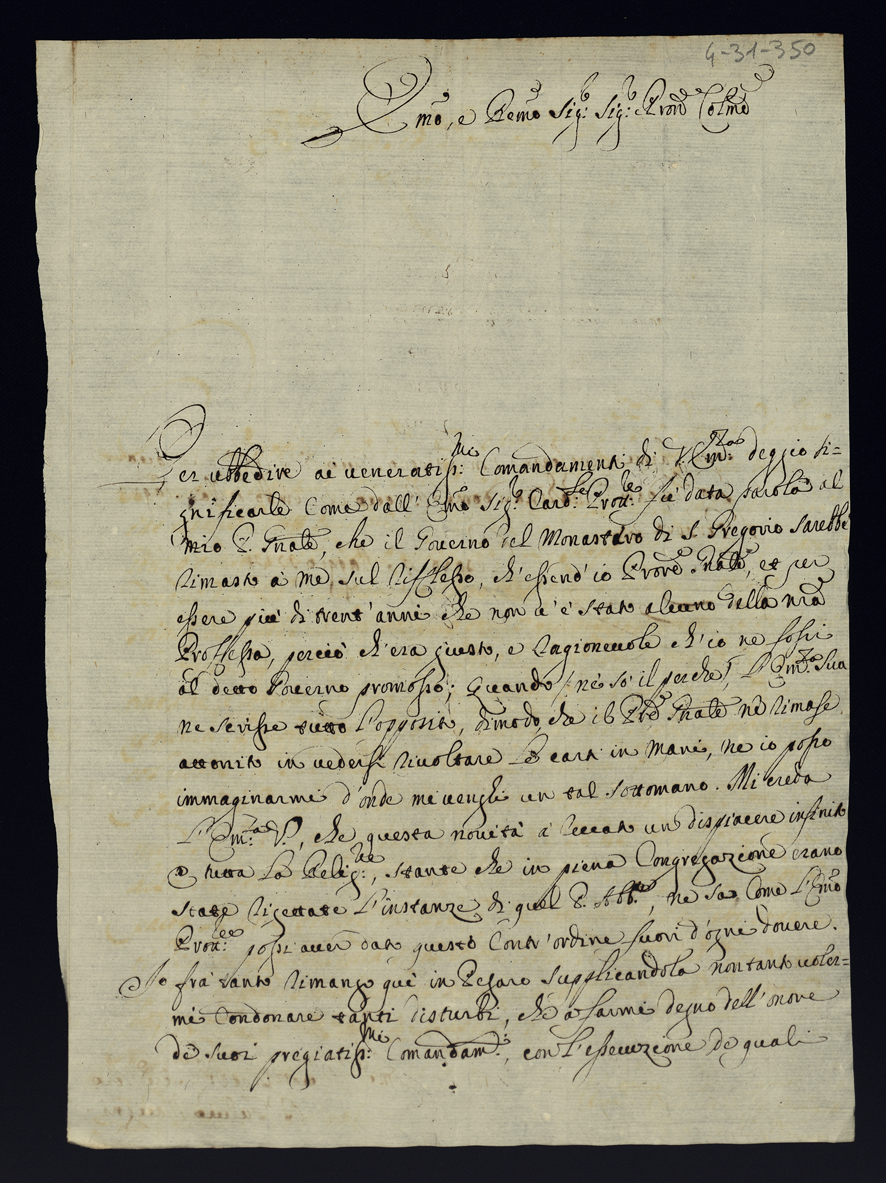 4-31-350
Emo, e Remo Sig.r Sig.r Pron Colmo
Per ubbedire ai veneratiss.mi Comandamenti di V. Em.za deggio si=
gnificarle Come dall' Emo Sig.r Card.le Prott.re fù data parola al
mio P. Gnale, che il Governo del Monastero di S. Gregorio sarebbe
rimasto à me sul riflesso, ch'essend'io Prore Gnale, et per
essere più di trent'anni che non v'è stato alcuno della nra
Professa, perciò ch'era giusto, e ragionevole ch'io ne fossi
al detto Governo promosso; Quando /: nè sò il perche :/ L'Em.za Sua
ne scrisse tutto l'opposito, dimodo, che il Pre Gnale nè rimase
attonito in vedersi rivoltare le carti in mani, ne io posso
immaginarmi d'onde mi venghi un tal sottomano. Mi creda
L'Em.za V., che questa novità à reccato un dispiacere infinito
à tutta la Relig.ne, stante che in piena Congregazione erano
state rigettate l'instanze di quel P. Abb.te, ne sa Come l'Emo
Prott.re possi aver dato questo Contr'ordine fuori d'ogni dovere.
Io frà tanto rimango quì in Pesaro supplicandola non tanto voler=
mi Condonare tanti disturbi, che à farmi degno dell'onore
de suoi pregiatiss.mi Comandam.ti, con l'essecuzione de quali